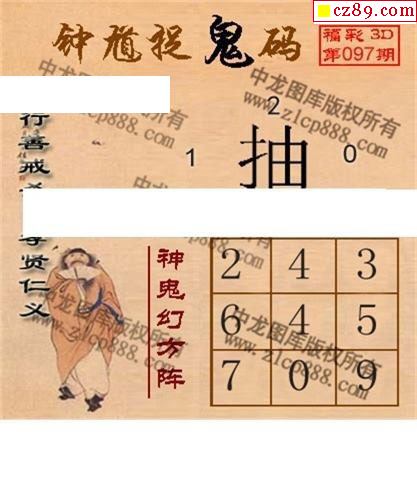 cz89.com
钟馗捉鬼码
福彩3D
第097期
中龙图库版权所有
www.zlcp888.com
行善戒
贤仁义
2
1 抽 0
神鬼幻方阵
2 4 3
6 4 5
7 0 9
中龙图库版权所有
www.zlcp888.com